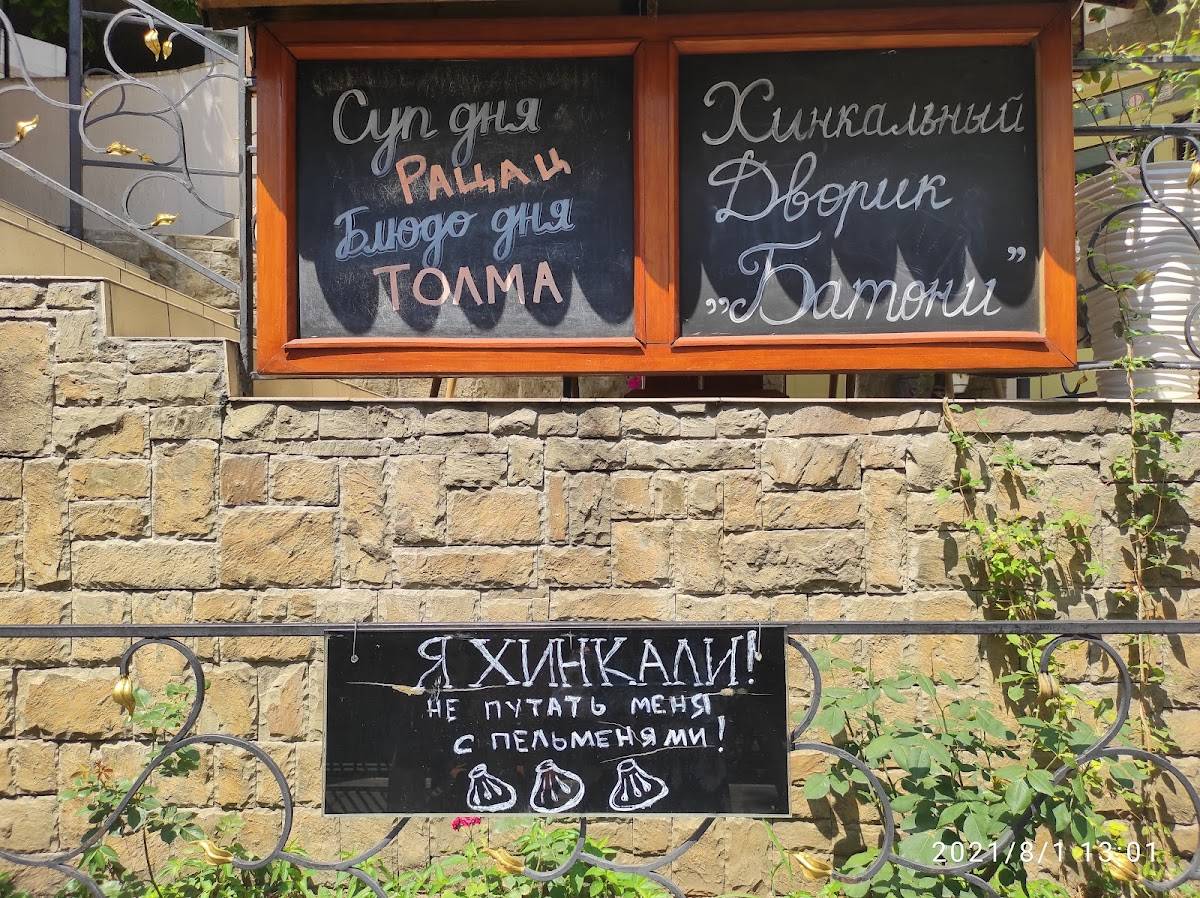 Суп дня
Рацац
Блюдо дня
ТОЛМА
Хинкальный
Дворик
„Батони”
Я ХИНКАЛИ!
НЕ ПУТАТЬ МЕНЯ
С ПЕЛЬМЕНЯМИ!
2021/8/1 13:01